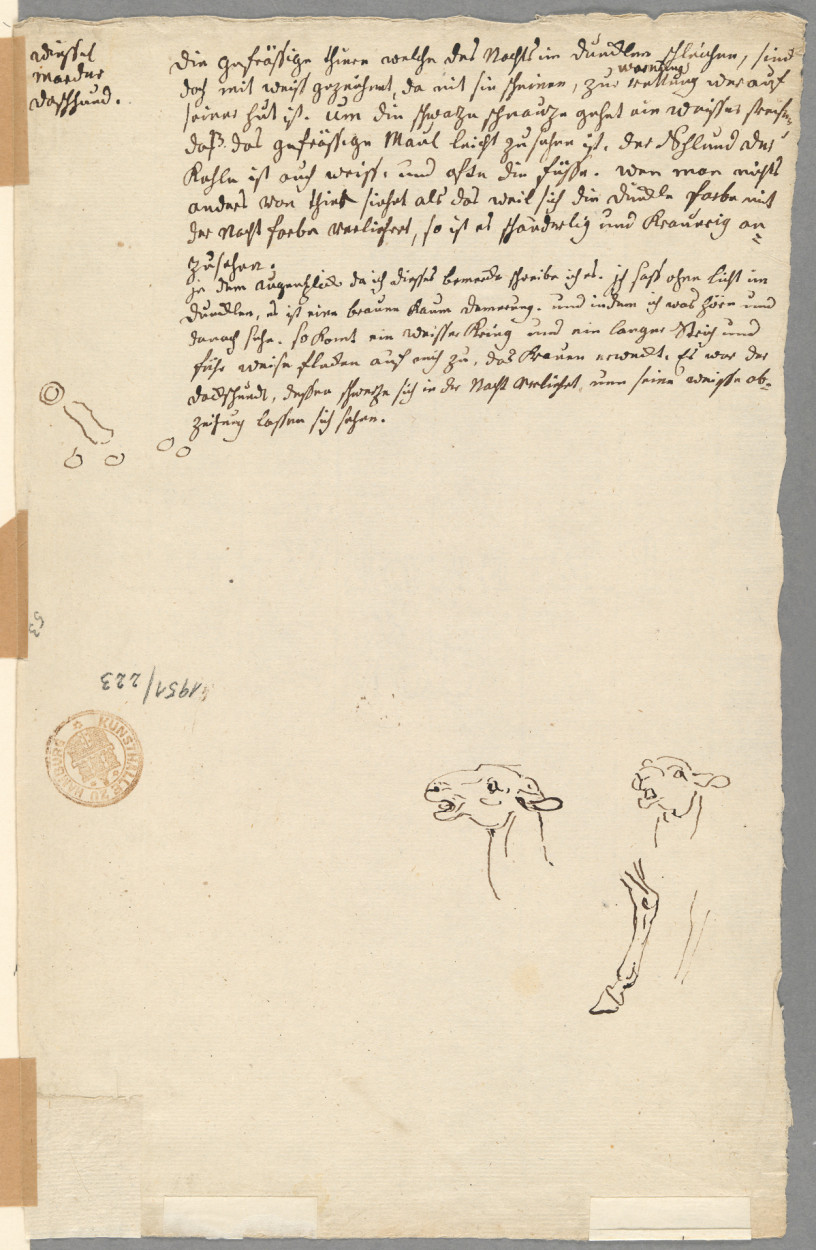 Wiessel
Marder
Dachshund.
Die gefrässige thiere welche des Nachts im Dunklen schleichen, sind
doch mit weiss gezeichnet, da mit sie scheinen, zur rettung wer auf
warnung
seiner hut ist. um die schwarze schnauze gehet ein Weisser streif
daß das gefrässige Maul leicht zu sehen ist. der Schlund der
Kehle ist auch weiss. und ofte die füsse. wen man nichts
anders von thier siehet als das weil sich die Dunkle farbe mit
der Nacht farbe verliehret, so ist es schauderlig und traurig an=
zusehen.
je dem Augenblick da ich dieses bemerke schreibe ich es. ich sass ohne licht im
Dunklen, es ist eine braune Kaum Demerung. und indem ich was höre und
darnach sehe. so komt ein Weisser Kring und ein langer Strich und
führ weise fleken auf mich zu, das Krauen erwekt. Es war der
Dackshundt, dessen schwerze sich in der Nacht verliehret, nun seine weisse ab=
zeihung lassen sich sehen.
53
1951/223
KUNSTHALLE ZU HAMBURG